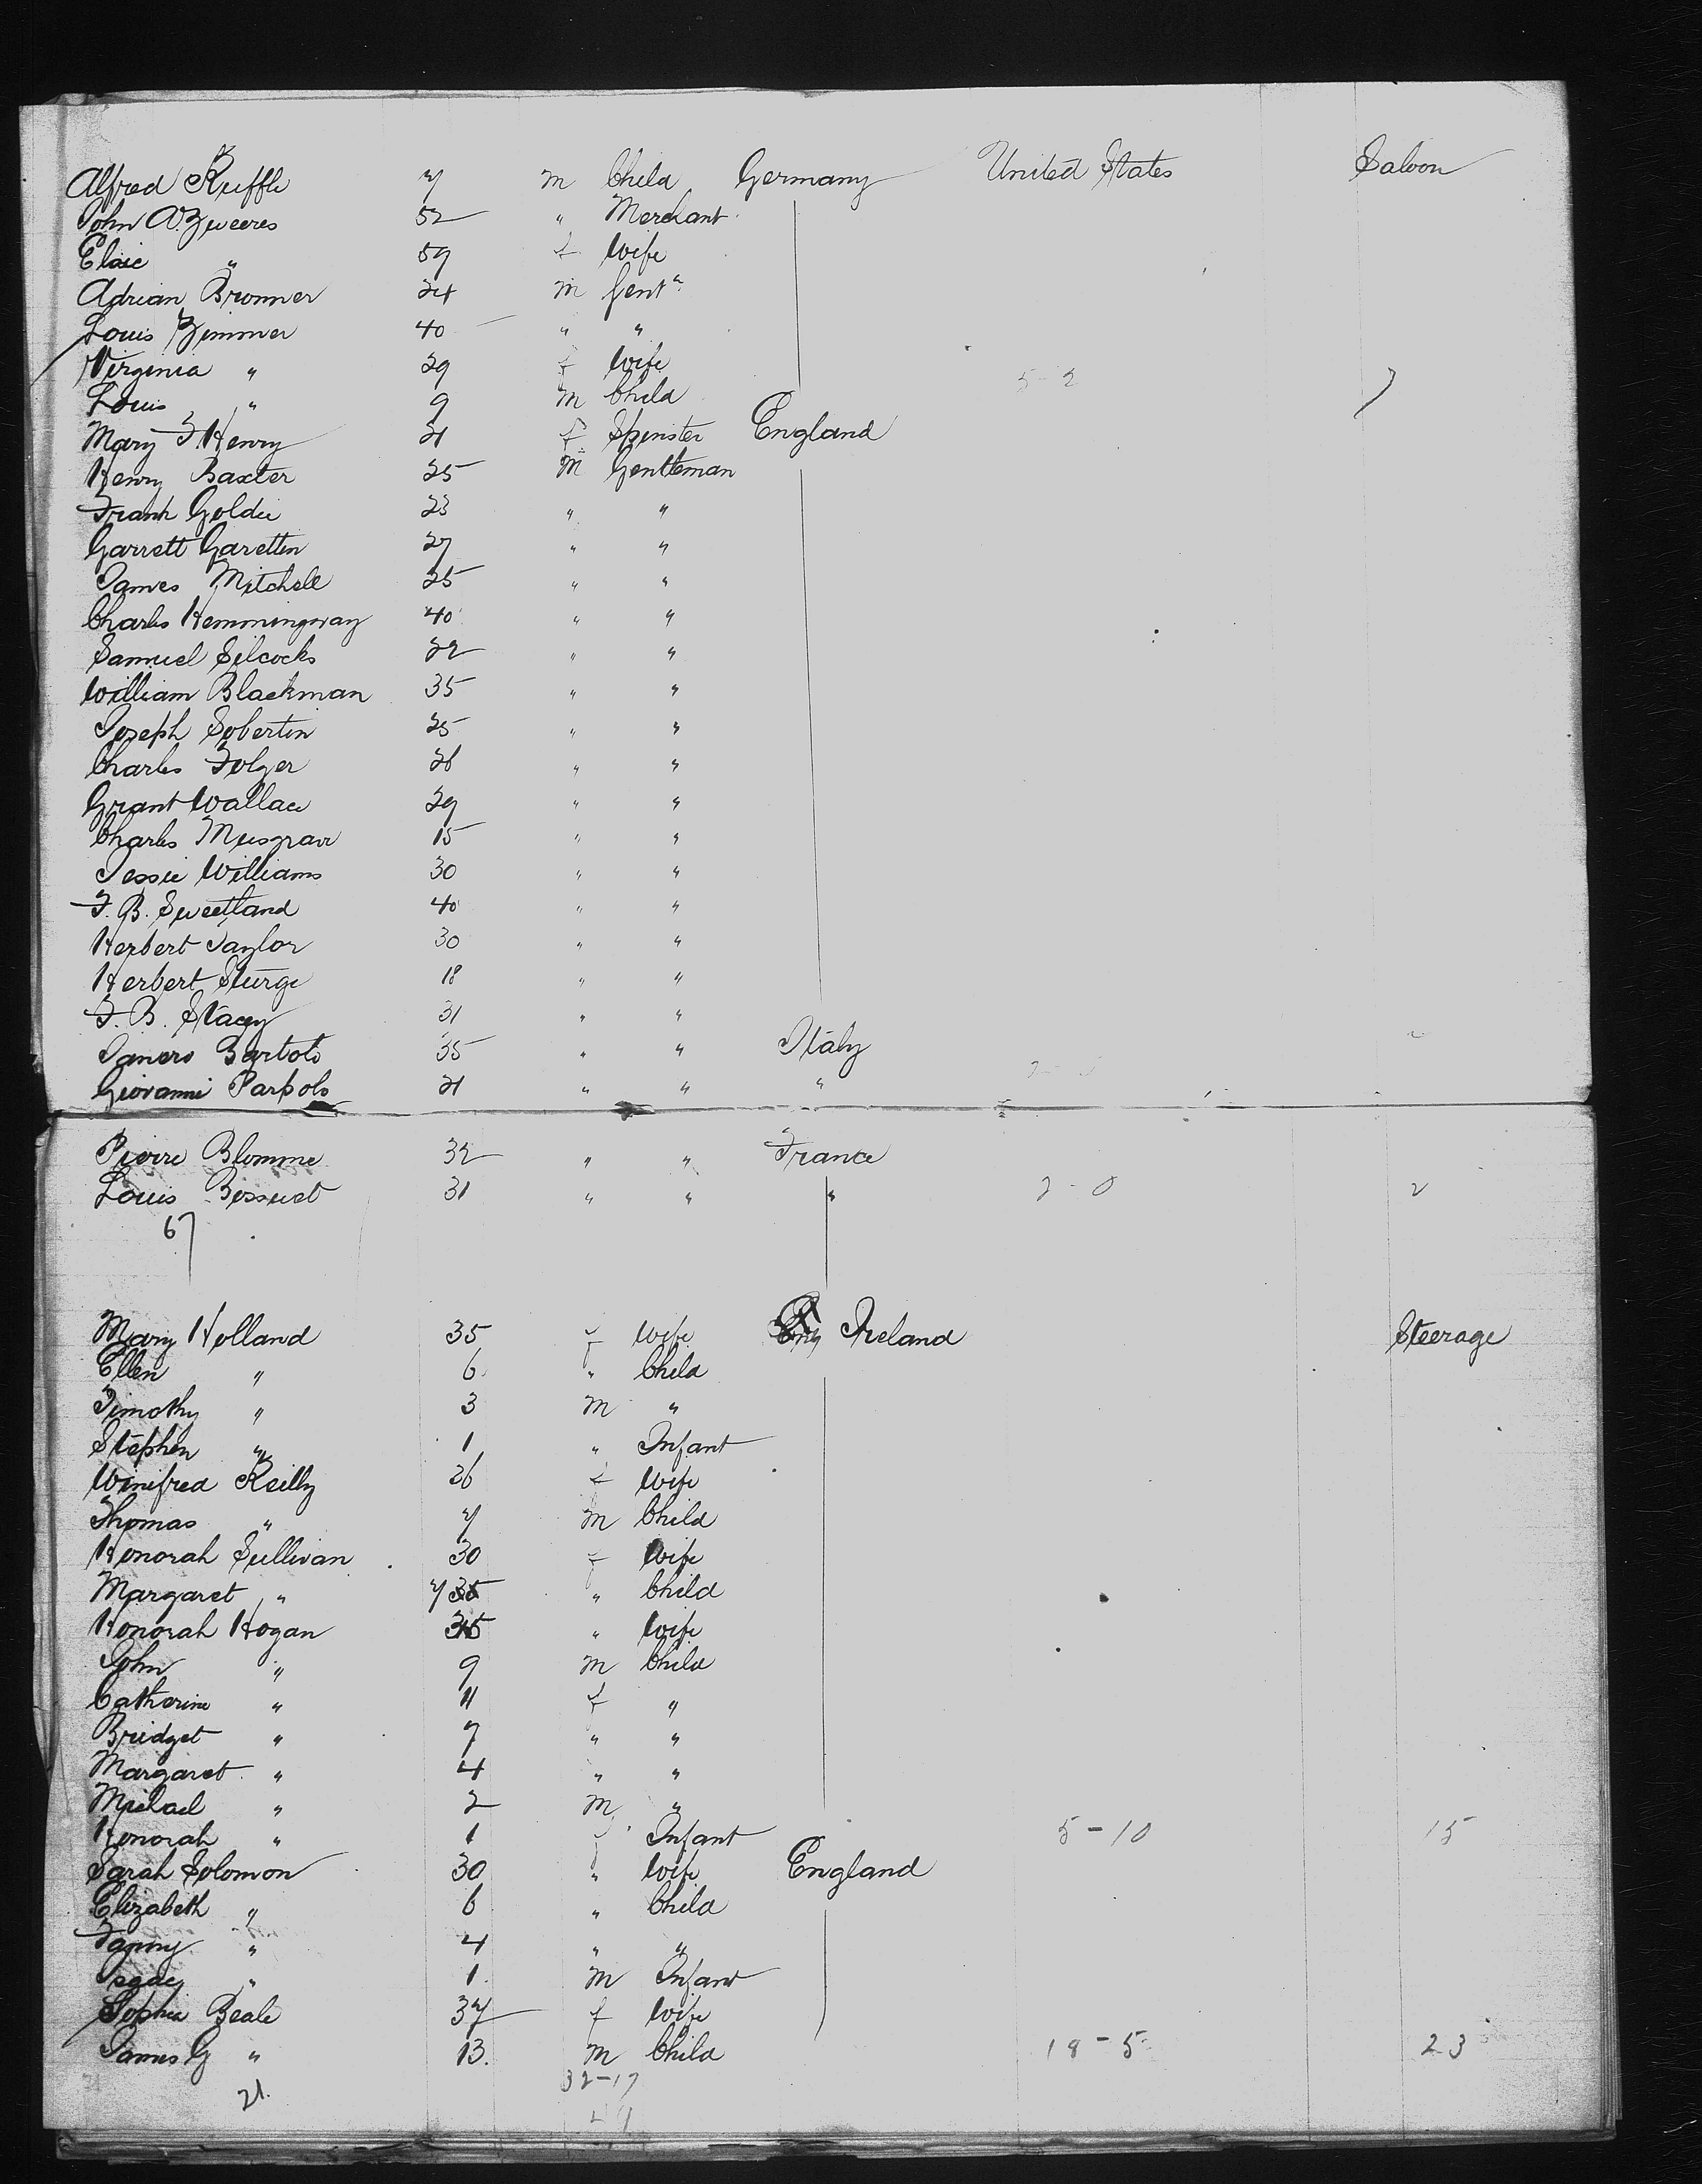 Alfred Kuffli 7 m Child Germany United States Saloon
John A. Zweeres 52 " Merchant
Elsie " 59 f Wife
Adrian Bronner 24 m Gent"
Louis Zimmer 40 " "
Virginia " 29 f Wife 5-2 7
Louis " 9 m Child
Mary F. Henry 21 f Spinster England
Henry Baxter 25 m Gentleman
Frank Goldie 23 " "
Garrett Garettin 27 " "
James Mitchell 25 " "
Charles Hemmingway 40 " "
Samuel Silcocks 22 " "
William Blackman 35 " "
Joseph Sobertin 25 " "
Charles Folger 26 " "
Grant Wallace 29 " "
Charles Musgrave 15 " "
Jessie Williams 30 " "
F. B. Sweetland 40 " "
Herbert Taylor 30 " "
Herbert Sturge 18 " "
F. B. Stacey 31 " "
Bartoli 35 " " Italy
Giovanni 21 " " "
Pierre Blomme 32 " " France
Louis Bossuet 31 " " " 2-0 2
67
Mary Holland 35 f Wife Ireland Steerage
Ellen " 6 " Child
Timothy " 3 m "
Stephen " 1 " Infant
Winifred Reilly 26 f Wife
Thomas " 7 m Child
Honorah Sullivan 30 f Wife
Margaret " 7 " Child
Honorah Hogan 35 " Wife
John " 9 m Child
Catherine " 11 f "
Bridget " 7 " "
Margaret " 4 " "
Michael " 2 m "
Honorah " 1 f Infant 5-10 15
Sarah Solomon 30 " Wife England
Elizabeth " 6 " Child
Fanny " 4 " "
Isaac " 1 m Infant
Sophia Beale 37 f Wife
James G " 13 m Child 18-5 23
21 32-17
49